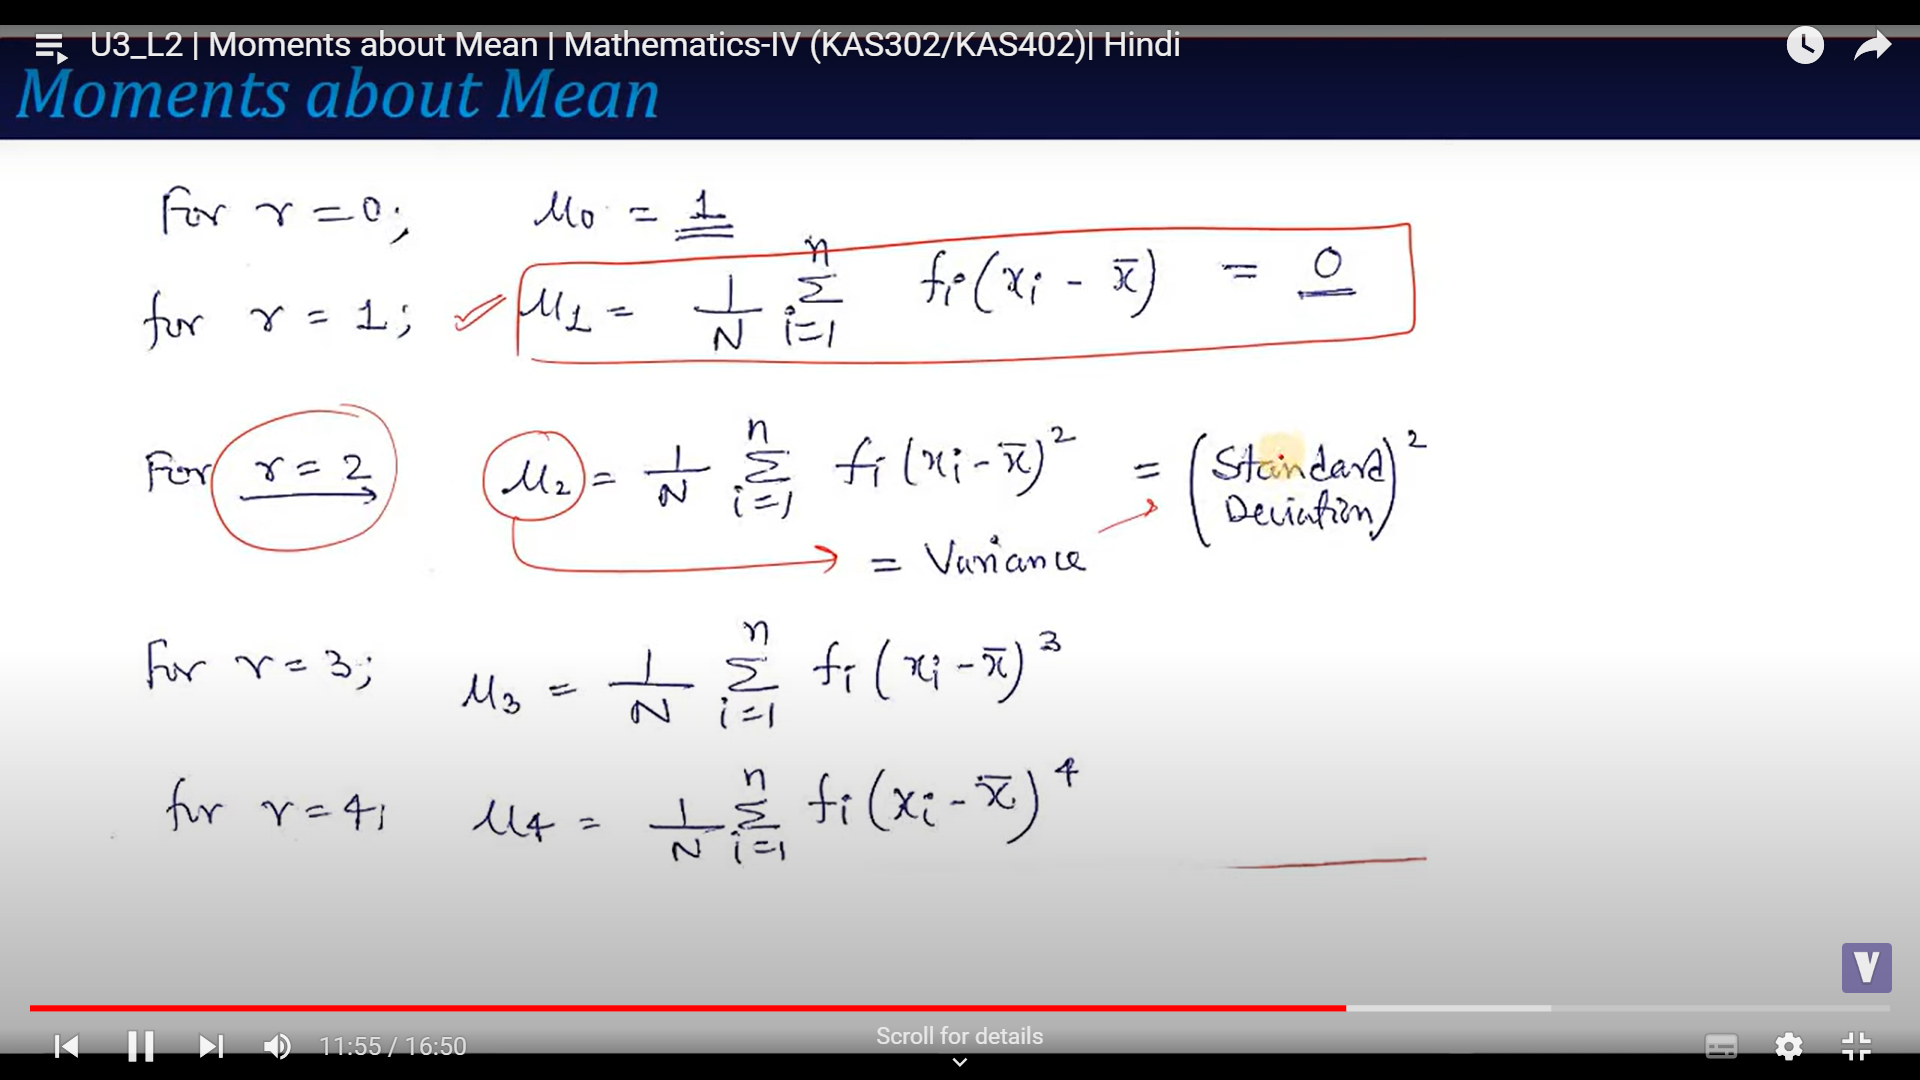 U3_L2 | Moments about Mean | Mathematics-IV (KAS302/KAS402)| Hindi
Moments about Mean
For r = 0; μ₀ = 1
for r = 1; μ₁ = 1/N n Σ i=1 fᵢ(xᵢ - x̄) = 0
For r = 2 μ₂ = 1/N n Σ i=1 fᵢ(xᵢ - x̄)² = (Standard Deviation)²
= Variance
For r = 3; μ₃ = 1/N n Σ i=1 fᵢ(xᵢ - x̄)³
for r = 4; μ₄ = 1/N n Σ i=1 fᵢ(xᵢ - x̄)⁴
V
11:55 / 16:50
Scroll for details